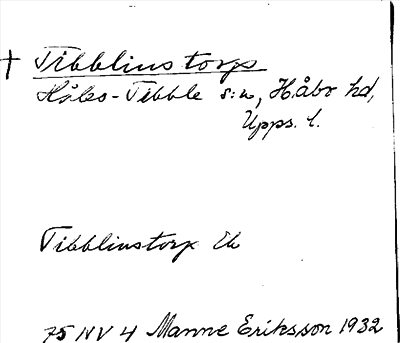 † Tibblinstorp
Håbo-Tibble s:n, Håbo hd,
Upps. l.
Tibblinstorp Ek
75 NV 4 Manne Eriksson 1932